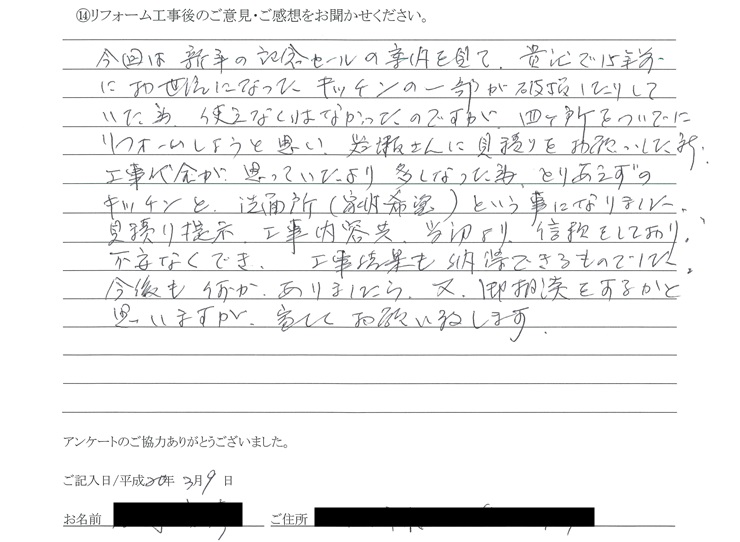 ⑭リフォーム工事後のご意見・ご感想をお聞かせください。
今回は 新年の記念セールの案内を見て、貴社で15年前
にお世話になったキッチンの一部が破損したりして
いた為、使えなくはなかったのですが、四ヶ所をついでに
リフォームしようと思い、岩瀬さんに見積りをお願いした所、
工事代金が、思っていたより多くなった為、とりあえずの
キッチンと、洗面所(家内希望)という事になりました。
見積り提示、工事内容共、当初より、信頼をしており、
不安なくでき、工事結果も納得できるものでした。
今後も何か、ありましたら、又、御相談をするかと
思いますが、宜しくお願い致します。
アンケートのご協力ありがとうございました。
ご記入日/平成20年 3月9日
お名前 ご住所